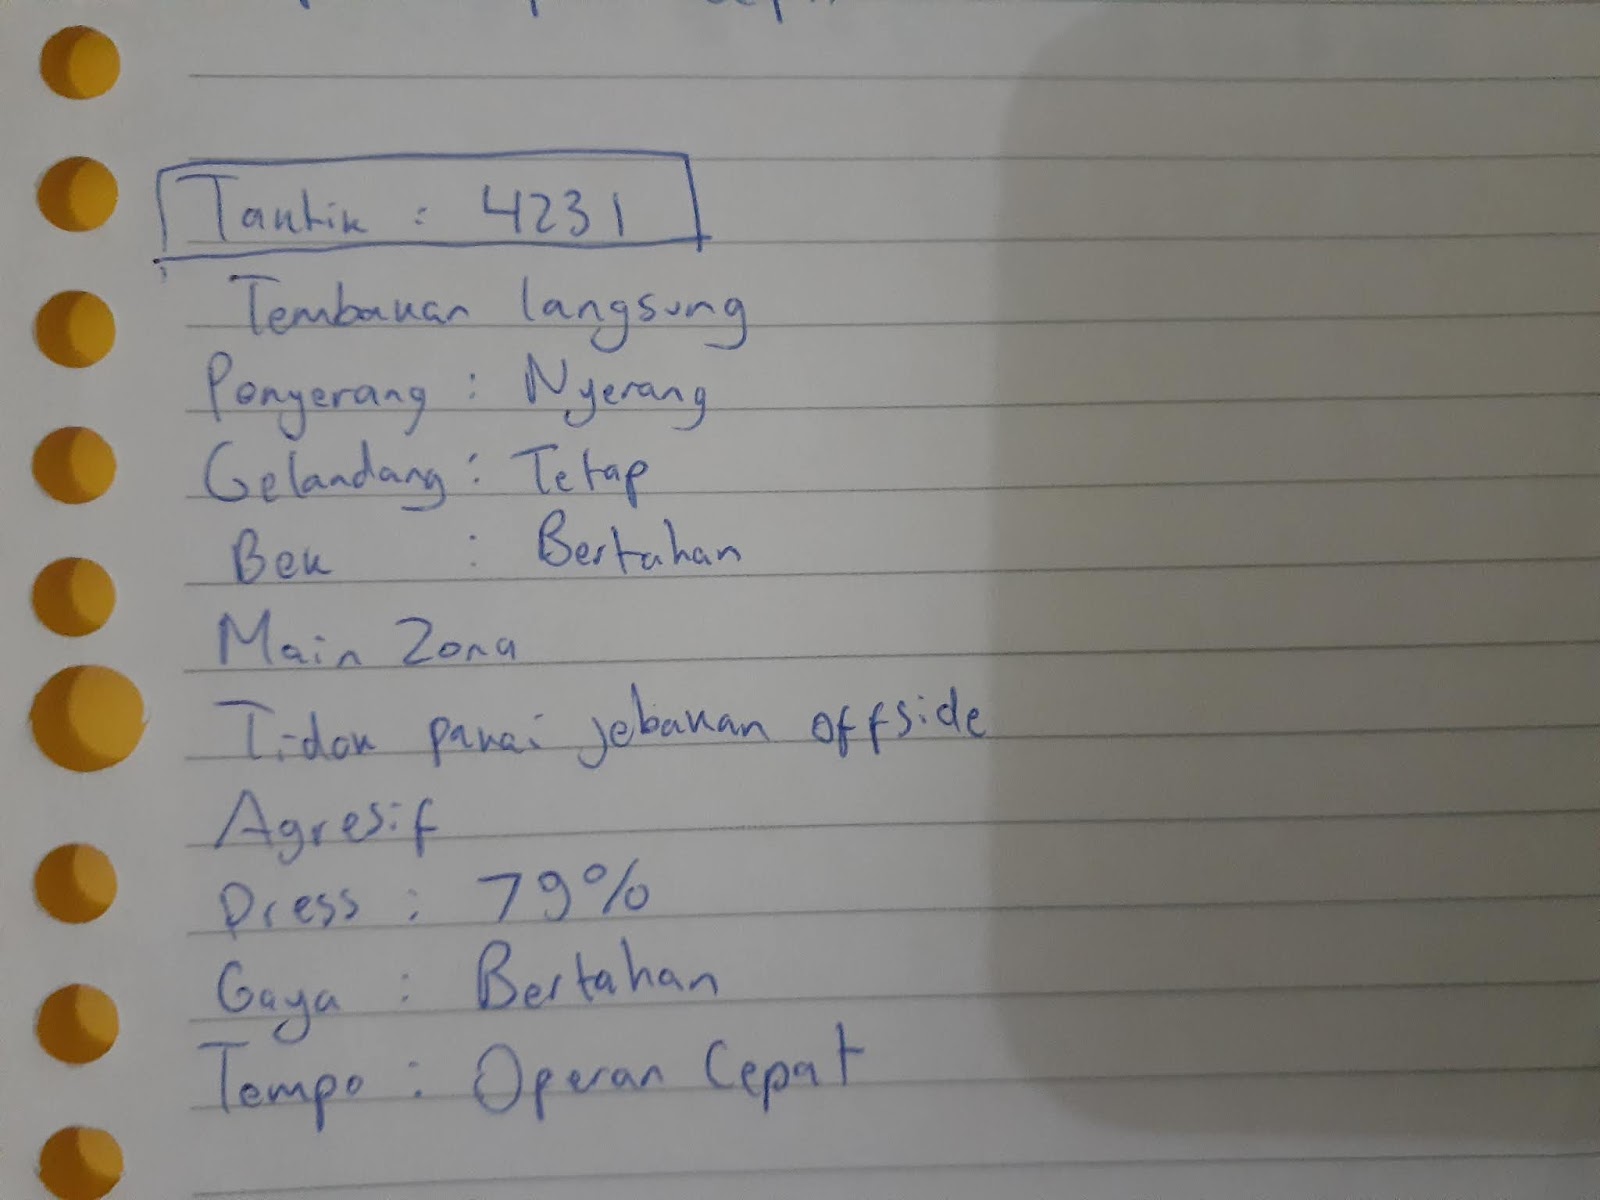 Taktik : 4231
Tembakan langsung
Penyerang : Nyerang
Gelandang : Tetap
Bek : Bertahan
Main Zona
Tidak pakai jebakan offside
Agresif
Press : 79%
Gaya : Bertahan
Tempo : Operan Cepat